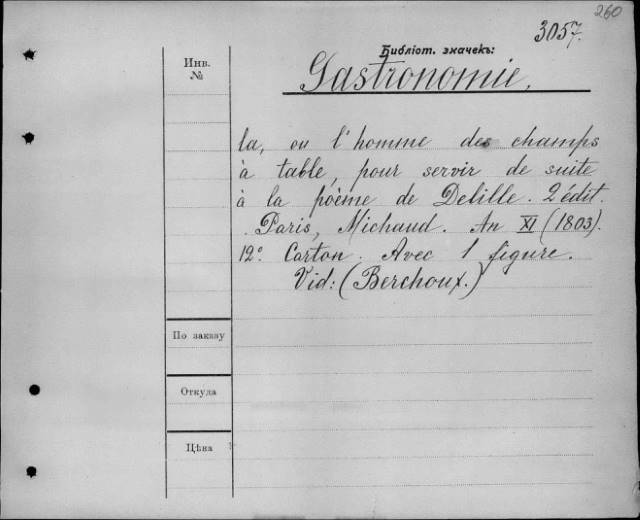 260
3057.
Библіот. значекъ:
Инв.
№
Gastronomie,
la, ou l'homme des champs
à table, pour servir de suite
à la poème de Delille. 2 édit.
Paris, Michaud. An XI (1803).
12º. Carton. Avec 1 figure.
Vid: (Berchoux.)
По заказу
Откуда
Цѣна